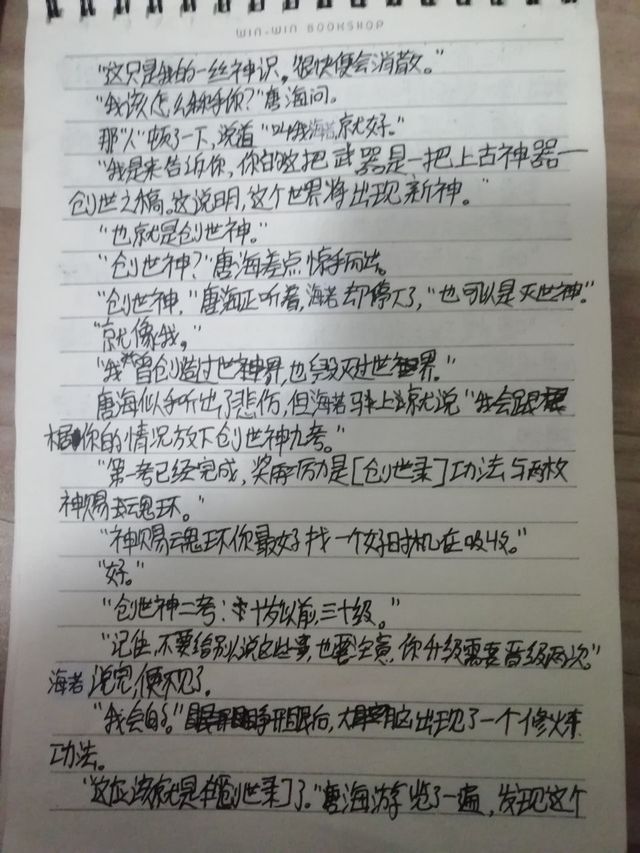 WIN-WIN BOOKSHOP
"这只是我的一丝神识,很快便会消散。"
"我该怎么称乎你?"唐海问。
那"人"顿了一下,说着"叫我海若就好。"
"我是来告诉你,你的这把武器是一把上古神器——
创世之稿。这说明,这个世界将出现新神。"
"也就是创世神。"
"创世神?"唐海差点惊乎而出。
"创世神,"唐海正听着,海若却停了,"也可以是灭世神。"
"就像我。"
"我曾创造过世界,也毁灭过世界。"
唐海似乎听出了悲伤,但海若马上就说"我会跟
据你的情况放下创世神九考。"
"第一考已经完成,奖励是[创世录]功法与两枚
神赐魂环。"
"神赐魂环你最好找一个好时机在吸收。"
"好。"
"创世神二考:十岁以前,三十级。"
"记住,不要给别人说这些事,也要注意,你升级需要晋级两次。"
海若说完,便不见了。
"我会的。"睁开眼后,大脑里出现了一个修炼
功法。
"这应该就是[创世录]了。"唐海游览了一遍,发现这个